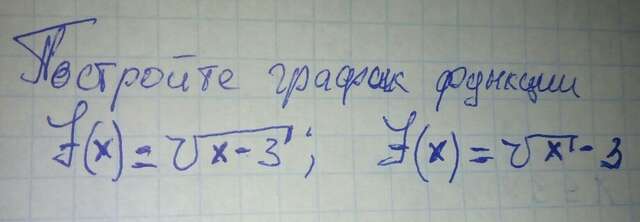 Постройте график функции
f(x) = √(x - 3); f(x) = √x - 3